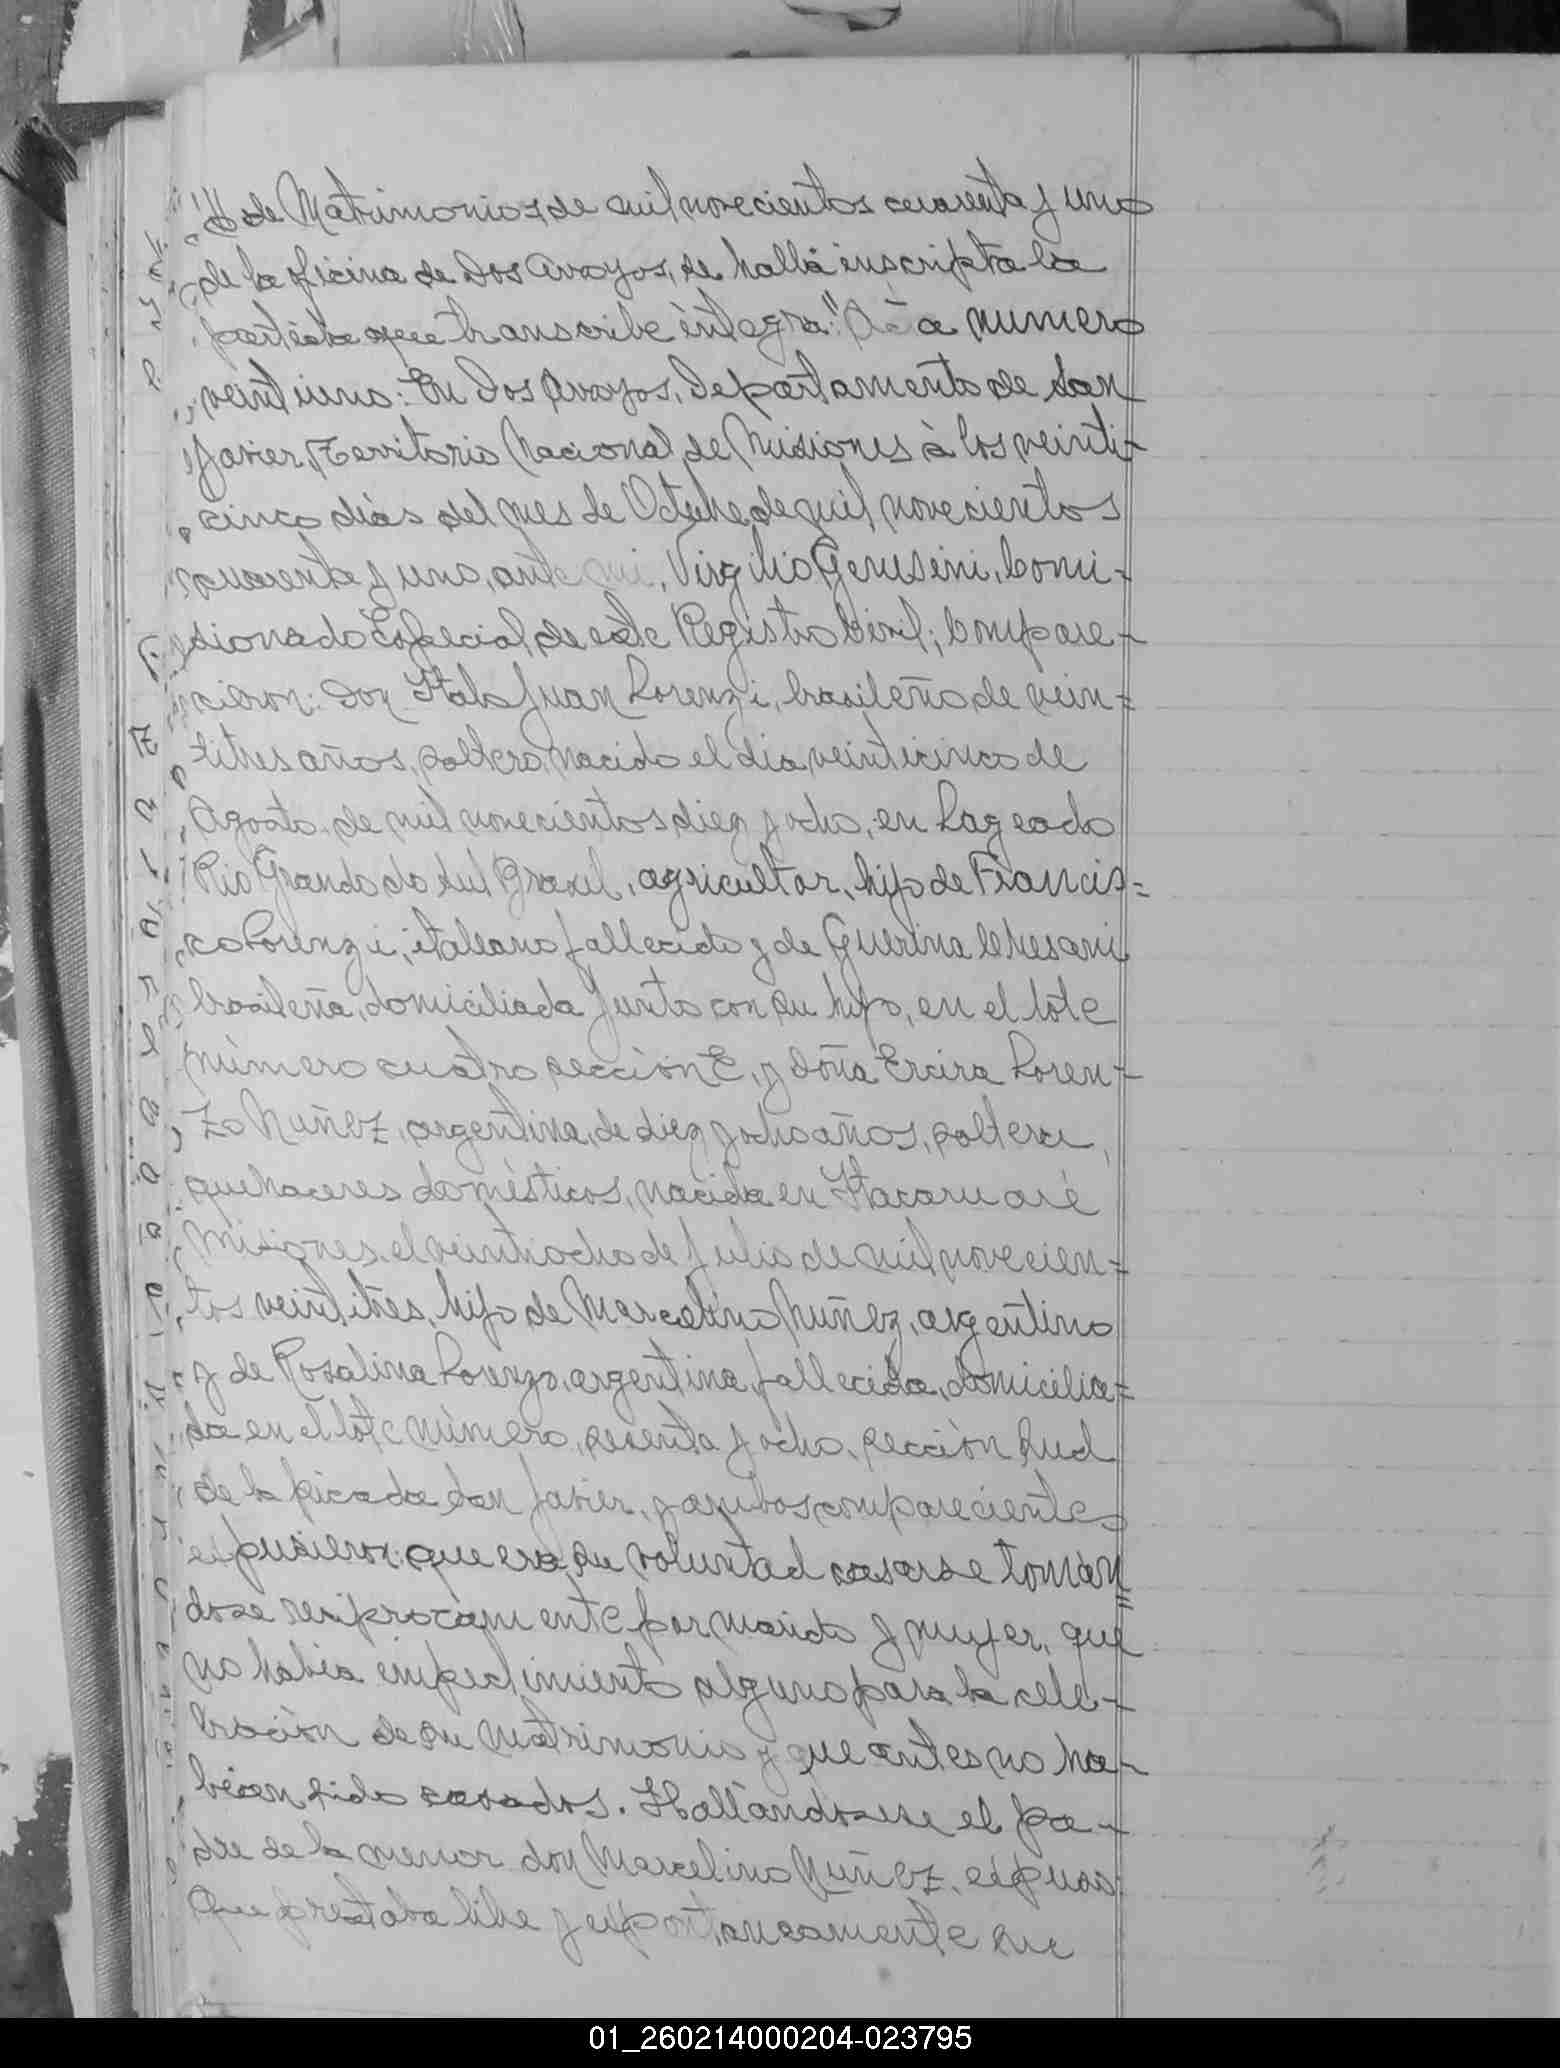 de Matrimonios, de mil novecientos cuarenta y uno
de la oficina de Dos Arroyos, se halla inscripta la
partida que transcribe íntegra: "Acta numero
veintiuno: En Dos Arroyos, Departamento de San
Javier, Territorio Nacional de Misiones à los veinti-
cinco dias del mes de Octubre de mil novecientos
cuarenta y uno, ante mi, Virgilio Gerusini, Comi-
sionado Especial de este Registro Civil; Compare-
cieron: Don Italo Juan Lorenzi, brasileño, de vein=
titres años, soltero, nacido el dia veinticinco de
Agosto de mil novecientos diez y ocho, en Lageado
Rio Grande do sul Brasil, agricultor, hijo de Francis=
co Lorenzi, italiano fallecido y de Guerina
brasileña, domiciliada junto con su hijo, en el lote
número cuatro sección E, y doña Ercira Loren-
zo Nuñez, argentina, de diez y ocho años, soltera,
quehaceres domésticos, nacida en Itacaruaré
Misiones, el veintiocho de Julio de mil novecien=
tos veintitres, hija de Marcelino Nuñez, argentino
y de Rosalina Lorenzo, argentina, fallecida, domicilia=
da en el lote número, sesenta y ocho, sección Sud
de la picada San Javier, y ambos comparecientes
expusieron: que era su voluntad casarse tomán=
dose reciprocamente por marido y mujer, que
no habia impedimiento alguno para la cele-
bración de su matrimonio y que antes no ha-
bian sido casados. Hallandose el pa-
dre de la menor don Marcelino Nuñez, expuso:
Que prestaba libre y espontaneamente su
01_260214000204-023795